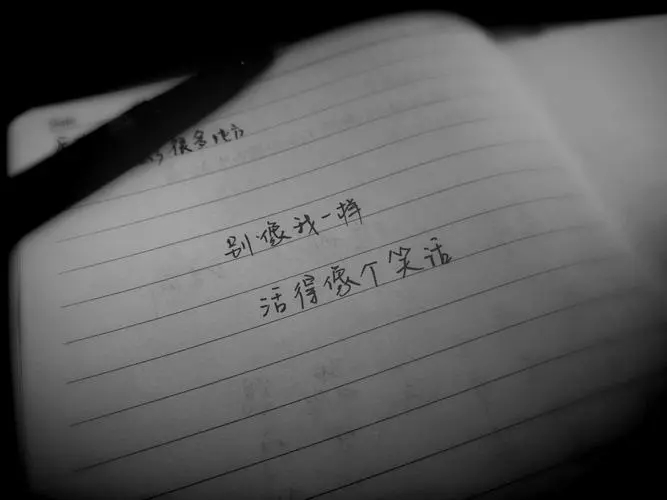 很多地方
别像我一样
活得像个笑话